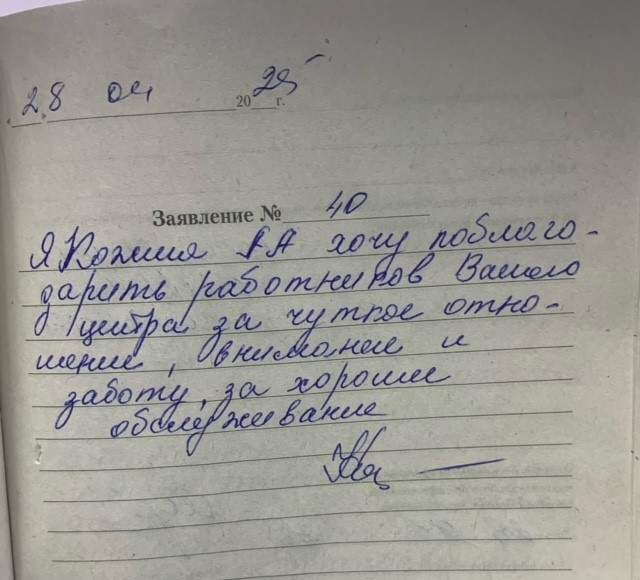 28 04 2025 г.
Заявление № 40
Я хочу поблаго-
дарить работников Вашего
центра за чуткое отно-
шение, внимание и
заботу, за хорошее
обслуживание